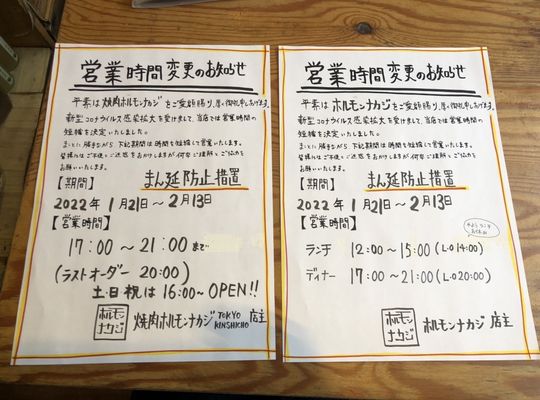 営業時間変更のお知らせ
平素は焼肉ホルモンナカジをご愛顧賜り、厚く御礼申しあげます。
新型コロナウイルス感染拡大を受けまして、当店では営業時間の
短縮を決定いたしました。
まことに勝手ながら、下記期間は時間を短縮して営業いたします。
皆様にはご不便とご迷惑をおかけしますが何卒ご理解とご協力を
お願いいたします。
【期間】 まん延防止措置
2022年 1月21日〜2月13日
【営業時間】
17:00〜21:00まで
(ラストオーダー 20:00)
土・日・祝は16:00〜OPEN!!
ホルモンナカジ 焼肉ホルモンナカジ TOKYO KINSHICHO 店主
営業時間変更のお知らせ
平素はホルモンナカジをご愛顧賜り、厚く御礼申しあげます。
新型コロナウイルス感染拡大を受けまして、当店では営業時間の
短縮を決定いたしました。
まことに勝手ながら、下記期間は時間を短縮して営業いたします。
皆様にはご不便とご迷惑をおかけしますが何卒ご理解とご協力を
お願いいたします。
【期間】 まん延防止措置
2022年 1月21日〜2月13日
【営業時間】
ランチ 12:00〜15:00(L・O 14:00)
ディナー 17:00〜21:00(L・O 20:00)
ホルモンナカジ ホルモンナカジ 店主